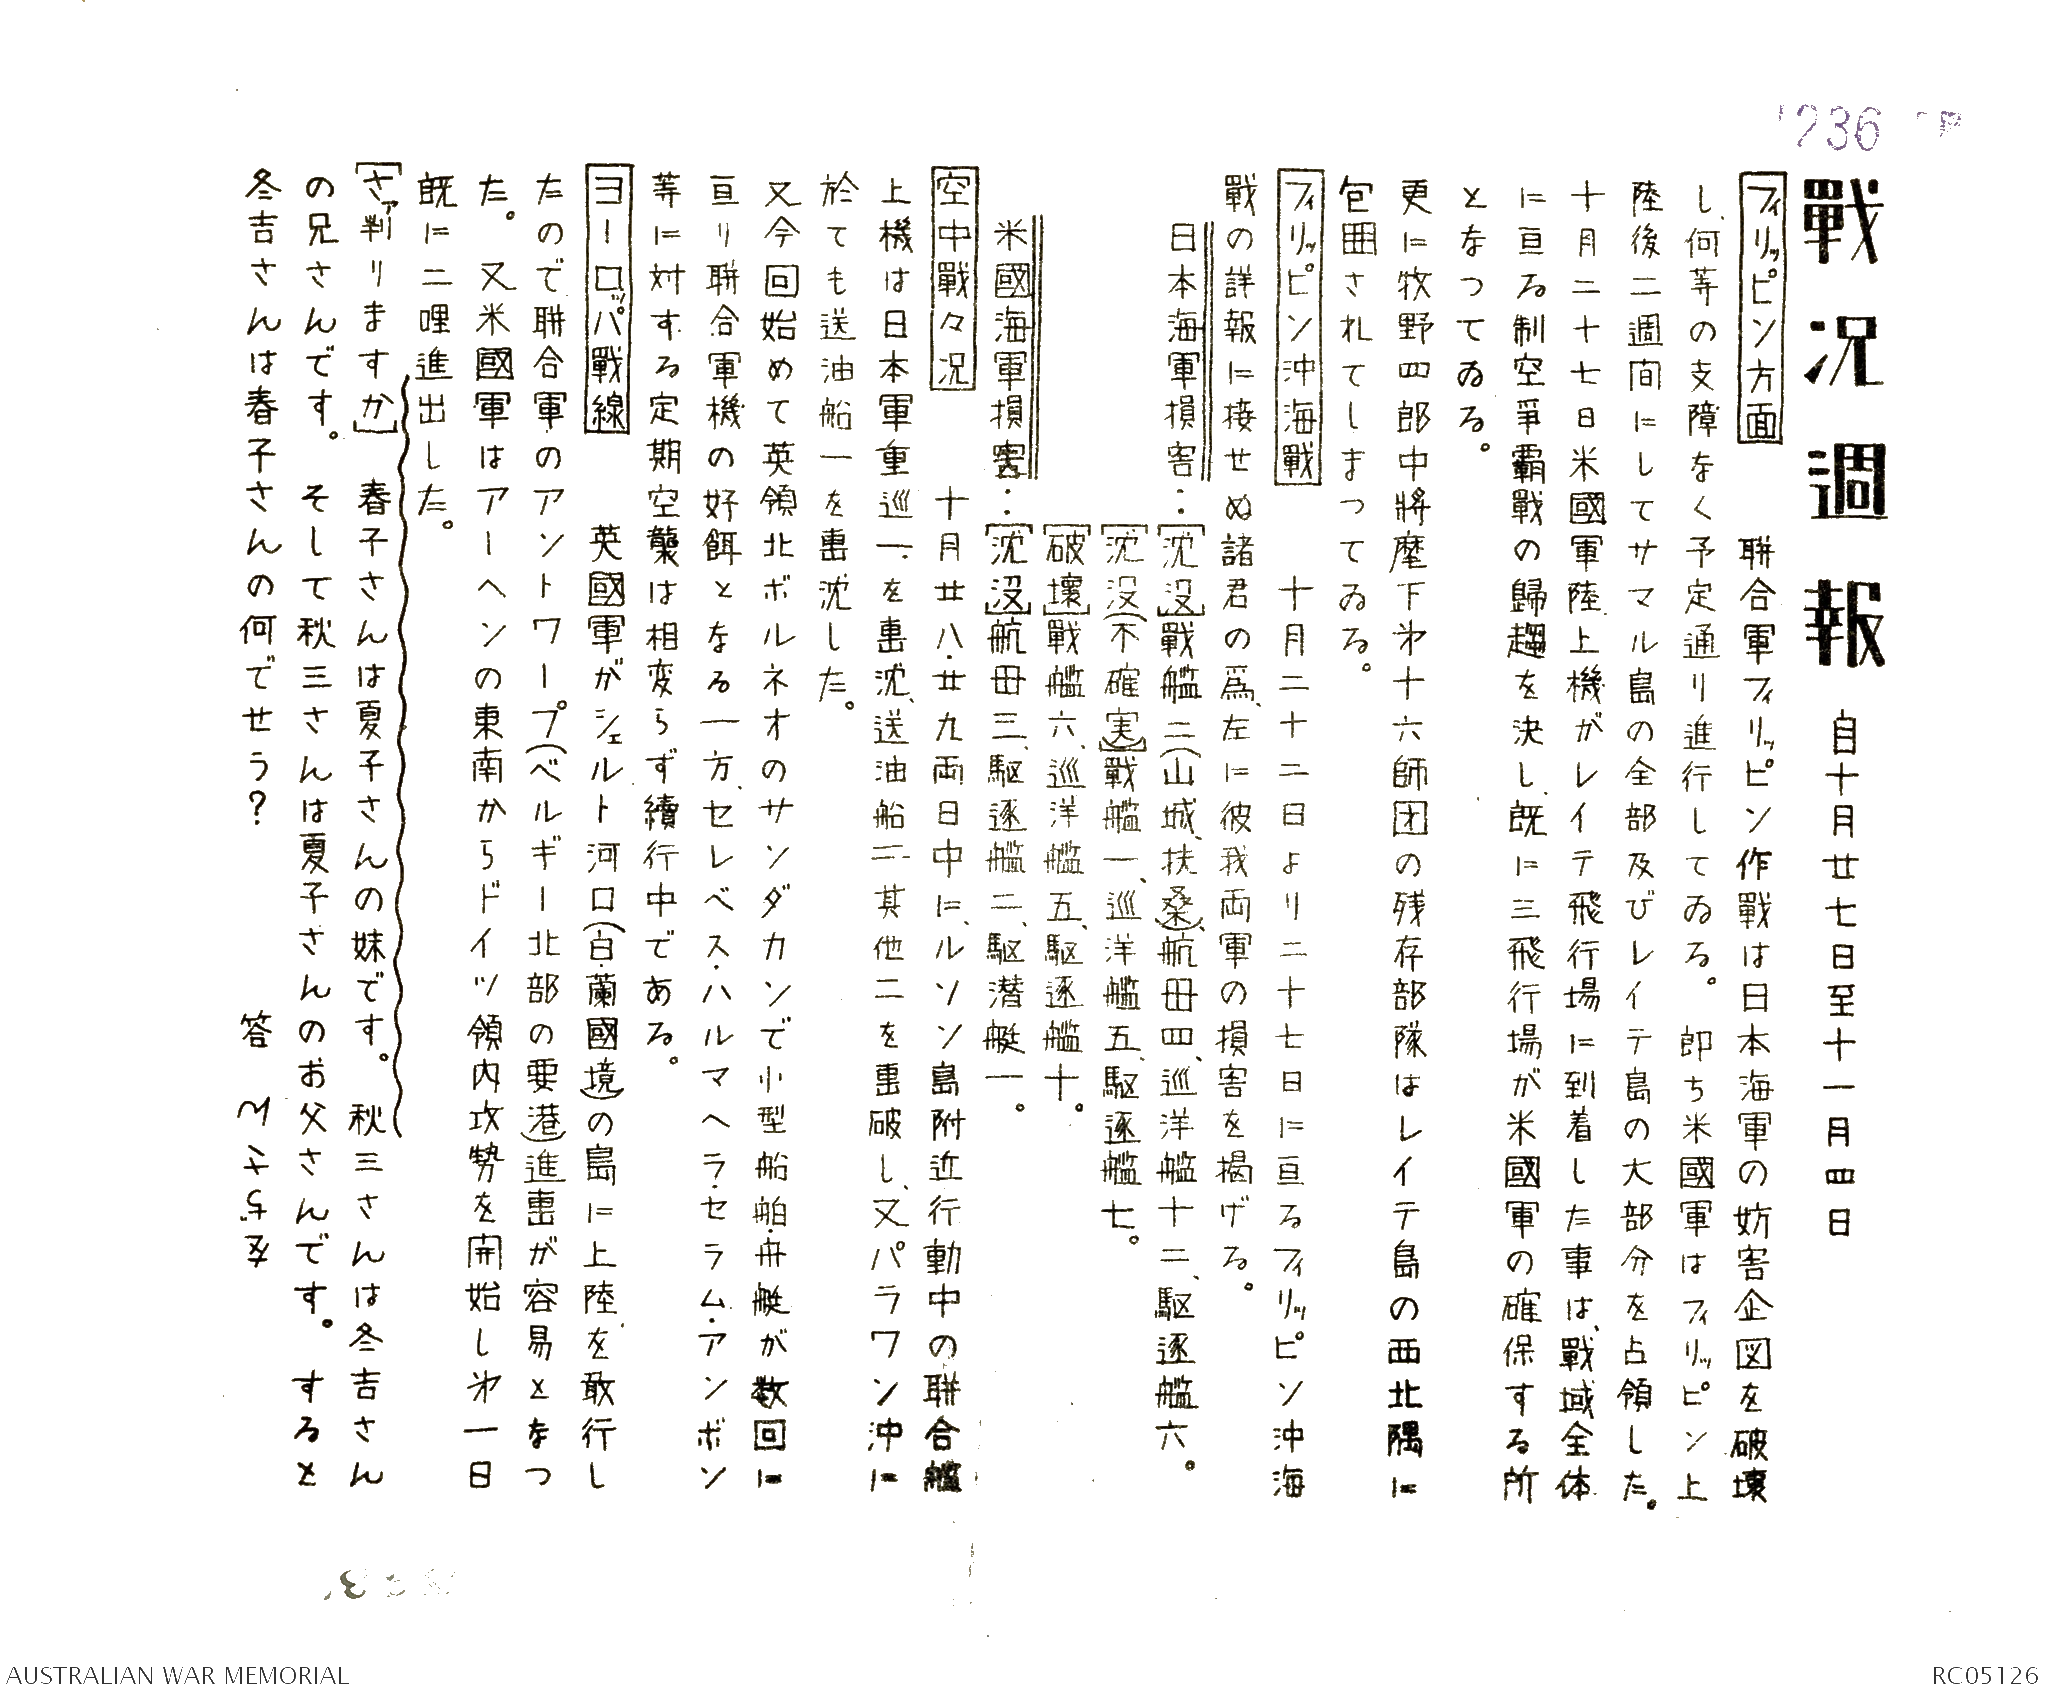 236
戰況週報 自十月廿七日至十一月四日
フィリッピン方面 聯合軍フィリッピン作戰は日本海軍の妨害企図を破壊
し、何等の支障なく予定通り進行してゐる。即ち米國軍はフィリッピン上
陸後二週間にしてサマル島の全部及びレイテ島の大部分を占領した。
十月二十七日米國軍陸上機がレイテ飛行場に到着した事は、戰域全体
に亘る制空爭覇戰の歸趨を決し、既に三飛行場が米國軍の確保する所
となつてゐる。
更に牧野四郎中將麾下㐧十六師団の残存部隊はレイテ島の西北隅に
包囲されてしまつてゐる。
フィリッピン沖海戰 十月二十二日より二十七日に亘るフィリッピン沖海
戰の詳報に接せぬ諸君の爲、左に彼我両軍の損害を揭げる。
日本海軍損害:[沈没]戰艦二(山城、扶桑)、航母四、巡洋艦十二、駆逐艦六。
[沈没(不確実)]戰艦一、巡洋艦五、駆逐艦七。
[破壊]戰艦六、巡洋艦五、駆逐艦十。
米國海軍損害:[沈没]航母三、駆逐艦二、駆潜艇一。
空中戰々況 十月廿八・廿九両日中に、ルソン島附近行動中の聯合艦
上機は日本軍重巡一、を轟沈、送油船二其他二を轟破し、又パラワン沖に
於ても送油船一を轟沈した。
又今回始めて英領北ボルネオのサンダカンで小型船舶・舟艇が数回に
亘り聯合軍機の好餌となる一方、セレベス・ハルマヘラ・セラム・アンボン
等に対する定期空襲は相変らず續行中である。
ヨーロッパ戰線 英國軍がシェルト河口(白・蘭國境)の島に上陸を敢行し
たので聯合軍のアントワープ(ベルギー北部の要港)進轟が容易となつ
た。又米國軍はアーヘンの東南からドイツ領内攻勢を開始し㐧一日
既に二哩進出した。
[さァ判りますか] 春子さんは夏子さんの妹です。秋三さんは冬吉さん
の兄さんです。そして秋三さんは夏子さんのお父さんです。すると
冬吉さんは春子さんの何でせう? 答
AUSTRALIAN WAR MEMORIAL
RC05126